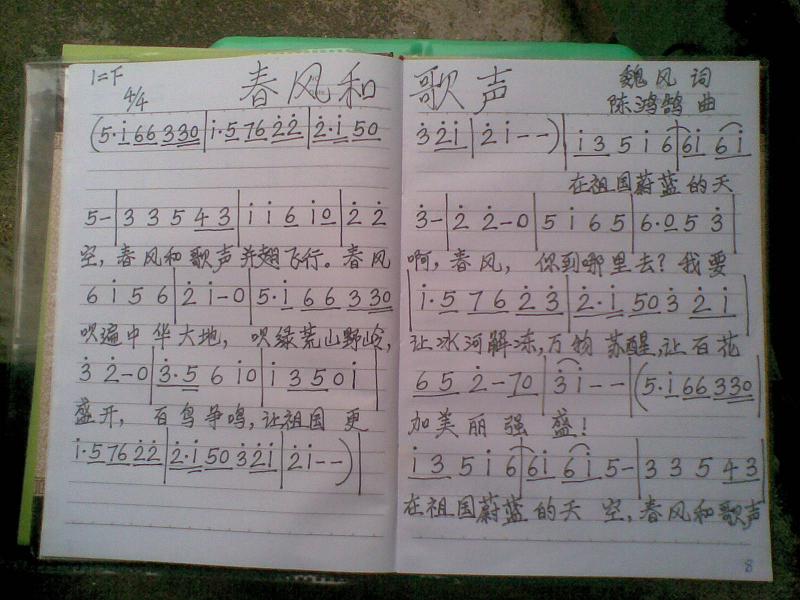 1=F 春风和 歌声 魏风 词
4/4 陈鸿鹄 曲
(5·1̇ 66 330|1̇·5 76 2̇2̇|2̇·1̇ 50 3̇ 2̇1̇|2̇ 1̇--)|1̇3 5 1̇ 6|61̇ 61̇
在祖国蔚蓝的天
5-|3 3 5 4 3|1̇ 1̇ 6 1̇0|2̇ 2̇ 3̇-|2̇ 2̇-0|5 1̇ 6 5|6·0 5 3̇
空,春风和歌声并翅飞行。春风 啊,春风,你到哪里去?我要
6 1̇ 5 6|2̇ 1̇-0|5·1̇ 6 6 3 30|1̇·5 7 6 2̇ 3̇|2̇·1̇ 50 3̇ 2̇1̇|
吹遍中华大地,吹绿荒山野岭, 让冰河解冻,万物苏醒,让百花
3̇ 2̇-0|3̇·5 6 1̇0|1̇ 3 5 0 1̇|65 2̇-70|3̇1̇--|(5·1̇ 66 330|
盛开,百鸟争鸣,让祖国更 加美丽强盛!
1̇·5 76 2̇2̇|2̇·1̇ 50 3̇ 2̇1̇|2̇1̇--)|1̇3 5 1̇ 6|61̇ 61̇ 5-|3 3 5 43|
在祖国蔚蓝的天空,春风和歌声
8